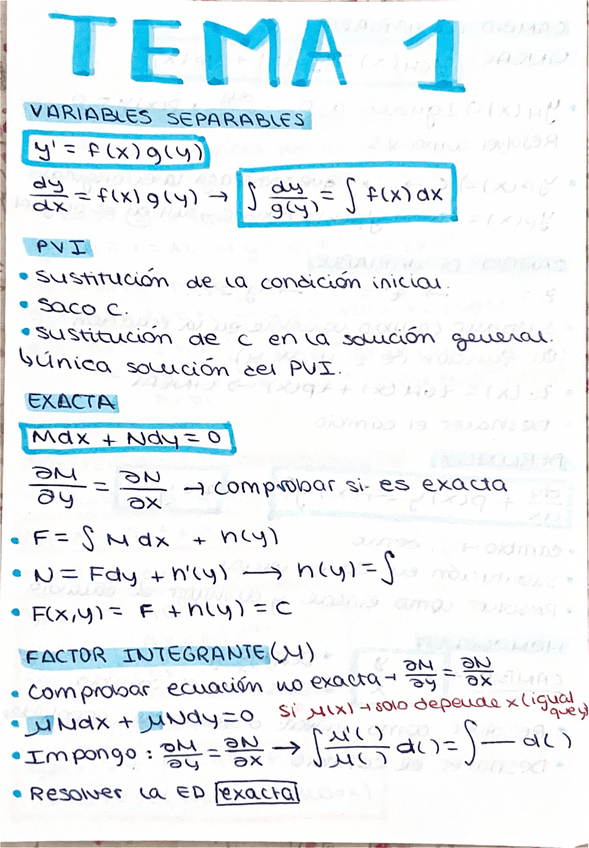 TEMA 1
VARIABLES SEPARABLES
y' = f(x) g(y)
dy/dx = f(x) g(y) → ∫ dy/g(y) = ∫ f(x) dx
PVI
• Sustitución de la condición inicial.
• Saco C.
• Sustitución de C en la solución general.
↳ Única solución del PVI.
EXACTA
Mdx + Ndy = 0
∂M/∂y = ∂N/∂x → comprobar si es exacta
• F = ∫ M dx + h(y)
• N = Fdy + h'(y) → h(y) = ∫
• F(x,y) = F + h(y) = C
FACTOR INTEGRANTE (μ)
• Comprobar ecuación no exacta → ∂M/∂y = ∂N/∂x
si μ(x) → solo depende x (igual que y)
• μMdx + μNdy = 0
• Impongo: ∂M/∂y = ∂N/∂x → ∫ μ'( )/μ( ) d( ) = ∫ — d( )
• Resolver la ED exacta